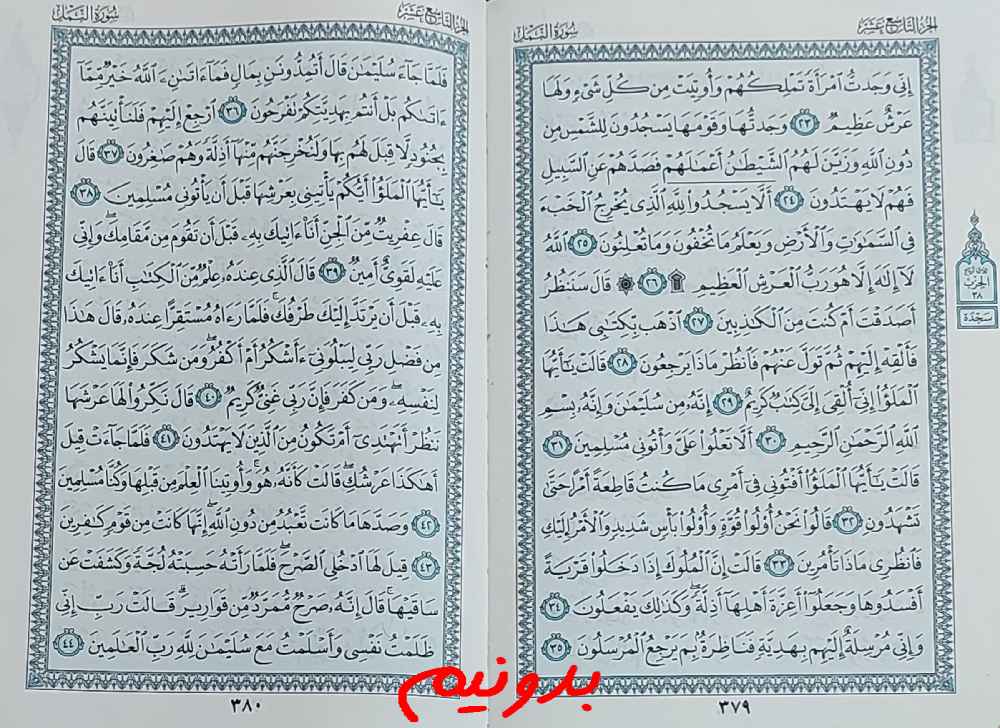 الجزء التاسع عشر
سورة النمل
إِنِّي وَجَدتُّ ٱمْرَأَةً تَمْلِكُهُمْ وَأُوتِيَتْ مِن كُلِّ شَيْءٍ وَلَهَا
عَرْشٌ عَظِيمٌ ٢٣ وَجَدتُّهَا وَقَوْمَهَا يَسْجُدُونَ لِلشَّمْسِ مِن
دُونِ ٱللَّهِ وَزَيَّنَ لَهُمُ ٱلشَّيْطَٰنُ أَعْمَٰلَهُمْ فَصَدَّهُمْ عَنِ ٱلسَّبِيلِ
فَهُمْ لَا يَهْتَدُونَ ٢٤ أَلَّا يَسْجُدُوا۟ لِلَّهِ ٱلَّذِي يُخْرِجُ ٱلْخَبْءَ
فِي ٱلسَّمَٰوَٰتِ وَٱلْأَرْضِ وَيَعْلَمُ مَا تُخْفُونَ وَمَا تُعْلِنُونَ ٢٥ ٱللَّهُ
لَآ إِلَٰهَ إِلَّا هُوَ رَبُّ ٱلْعَرْشِ ٱلْعَظِيمِ ۩ ٢٦ ۞ قَالَ سَنَنظُرُ
أَصَدَقْتَ أَمْ كُنتَ مِنَ ٱلْكَٰذِبِينَ ٢٧ ٱذْهَب بِّكِتَٰبِي هَٰذَا
فَأَلْقِهْ إِلَيْهِمْ ثُمَّ تَوَلَّ عَنْهُمْ فَٱنظُرْ مَاذَا يَرْجِعُونَ ٢٨ قَالَتْ يَٰٓأَيُّهَا
ٱلْمَلَؤُا۟ إِنِّيٓ أُلْقِيَ إِلَيَّ كِتَٰبٌ كَرِيمٌ ٢٩ إِنَّهُۥ مِن سُلَيْمَٰنَ وَإِنَّهُۥ بِسْمِ
ٱللَّهِ ٱلرَّحْمَٰنِ ٱلرَّحِيمِ ٣٠ أَلَّا تَعْلُوا۟ عَلَيَّ وَأْتُونِي مُسْلِمِينَ ٣١
قَالَتْ يَٰٓأَيُّهَا ٱلْمَلَؤُا۟ أَفْتُونِي فِيٓ أَمْرِي مَا كُنتُ قَاطِعَةً أَمْرًا حَتَّىٰ
تَشْهَدُونِ ٣٢ قَالُوا۟ نَحْنُ أُو۟لُوا۟ قُوَّةٍ وَأُو۟لُوا۟ بَأْسٍ شَدِيدٍ وَٱلْأَمْرُ إِلَيْكِ
فَٱنظُرِي مَاذَا تَأْمُرِينَ ٣٣ قَالَتْ إِنَّ ٱلْمُلُوكَ إِذَا دَخَلُوا۟ قَرْيَةً
أَفْسَدُوهَا وَجَعَلُوٓا۟ أَعِزَّةَ أَهْلِهَآ أَذِلَّةً ۖ وَكَذَٰلِكَ يَفْعَلُونَ ٣٤
وَإِنِّي مُرْسِلَةٌ إِلَيْهِم بِهَدِيَّةٍ فَنَاظِرَةٌۢ بِمَ يَرْجِعُ ٱلْمُرْسَلُونَ ٣٥
٣٧٩
الحزب
٣٨
سجدة
الجزء التاسع عشر
سورة النمل
فَلَمَّا جَآءَ سُلَيْمَٰنَ قَالَ أَتُمِدُّونَنِ بِمَالٍ فَمَآ ءَاتَىٰنِۦَ ٱللَّهُ خَيْرٌ مِّمَّآ
ءَاتَىٰكُم بَلْ أَنتُم بِهَدِيَّتِكُمْ تَفْرَحُونَ ٣٦ ٱرْجِعْ إِلَيْهِمْ فَلَنَأْتِيَنَّهُم
بِجُنُودٍ لَّا قِبَلَ لَهُم بِهَا وَلَنُخْرِجَنَّهُم مِّنْهَآ أَذِلَّةً وَهُمْ صَٰغِرُونَ ٣٧ قَالَ
يَٰٓأَيُّهَا ٱلْمَلَؤُا۟ أَيُّكُمْ يَأْتِينِي بِعَرْشِهَا قَبْلَ أَن يَأْتُونِي مُسْلِمِينَ ٣٨
قَالَ عِفْرِيتٌ مِّنَ ٱلْجِنِّ أَنَا۠ ءَاتِيكَ بِهِۦ قَبْلَ أَن تَقُومَ مِن مَّقَامِكَ ۖ وَإِنِّي
عَلَيْهِ لَقَوِيٌّ أَمِينٌ ٣٩ قَالَ ٱلَّذِي عِندَهُۥ عِلْمٌ مِّنَ ٱلْكِتَٰبِ أَنَا۠ ءَاتِيكَ
بِهِۦ قَبْلَ أَن يَرْتَدَّ إِلَيْكَ طَرْفُكَ ۚ فَلَمَّا رَءَاهُ مُسْتَقِرًّا عِندَهُۥ قَالَ هَٰذَا
مِن فَضْلِ رَبِّي لِيَبْلُوَنِيٓ ءَأَشْكُرُ أَمْ أَكْفُرُ ۖ وَمَن شَكَرَ فَإِنَّمَا يَشْكُرُ
لِنَفْسِهِۦ ۖ وَمَن كَفَرَ فَإِنَّ رَبِّي غَنِيٌّ كَرِيمٌ ٤٠ قَالَ نَكِّرُوا۟ لَهَا عَرْشَهَا
نَنظُرْ أَتَهْتَدِيٓ أَمْ تَكُونُ مِنَ ٱلَّذِينَ لَا يَهْتَدُونَ ٤١ فَلَمَّا جَآءَتْ قِيلَ
أَهَٰكَذَا عَرْشُكِ ۖ قَالَتْ كَأَنَّهُۥ هُوَ ۚ وَأُوتِينَا ٱلْعِلْمَ مِن قَبْلِهَا وَكُنَّا مُسْلِمِينَ
٤٢ وَصَدَّهَا مَا كَانَت تَّعْبُدُ مِن دُونِ ٱللَّهِ ۖ إِنَّهَا كَانَتْ مِن قَوْمٍ كَٰفِرِينَ
٤٣ قِيلَ لَهَا ٱدْخُلِي ٱلصَّرْحَ ۖ فَلَمَّا رَأَتْهُ حَسِبَتْهُ لُجَّةً وَكَشَفَتْ عَن
سَاقَيْهَا ۚ قَالَ إِنَّهُۥ صَرْحٌ مُّمَرَّدٌ مِّن قَوَارِيرَ ۗ قَالَتْ رَبِّ إِنِّي
ظَلَمْتُ نَفْسِي وَأَسْلَمْتُ مَعَ سُلَيْمَٰنَ لِلَّهِ رَبِّ ٱلْعَٰلَمِينَ ٤٤
٣٨٠
بدونیم